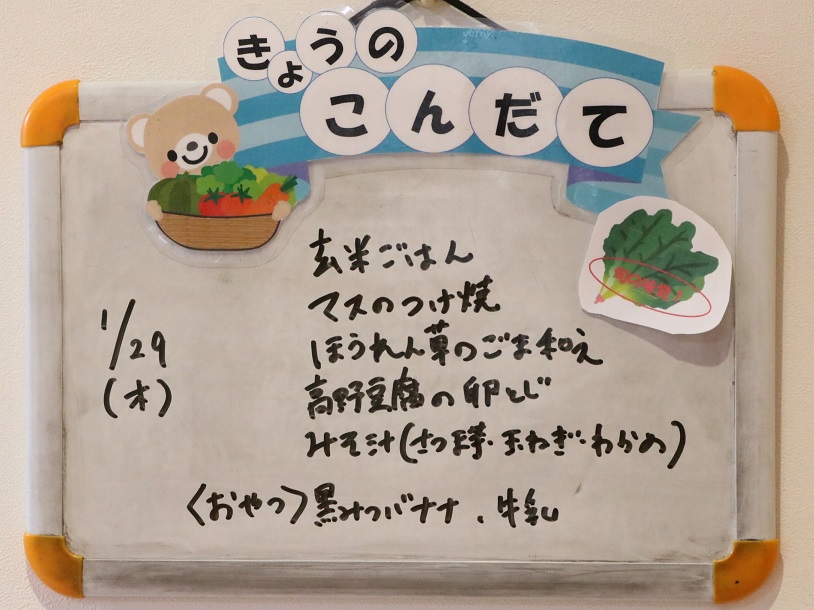 きょうの
こんだて
玄米ごはん
マスのつけ焼
1/29
(木)
ほうれん草のごま和え
高野豆腐の卵とじ
みそ汁(さつま芋・玉ねぎ・わかめ)
〈おやつ〉黒みつバナナ、牛乳